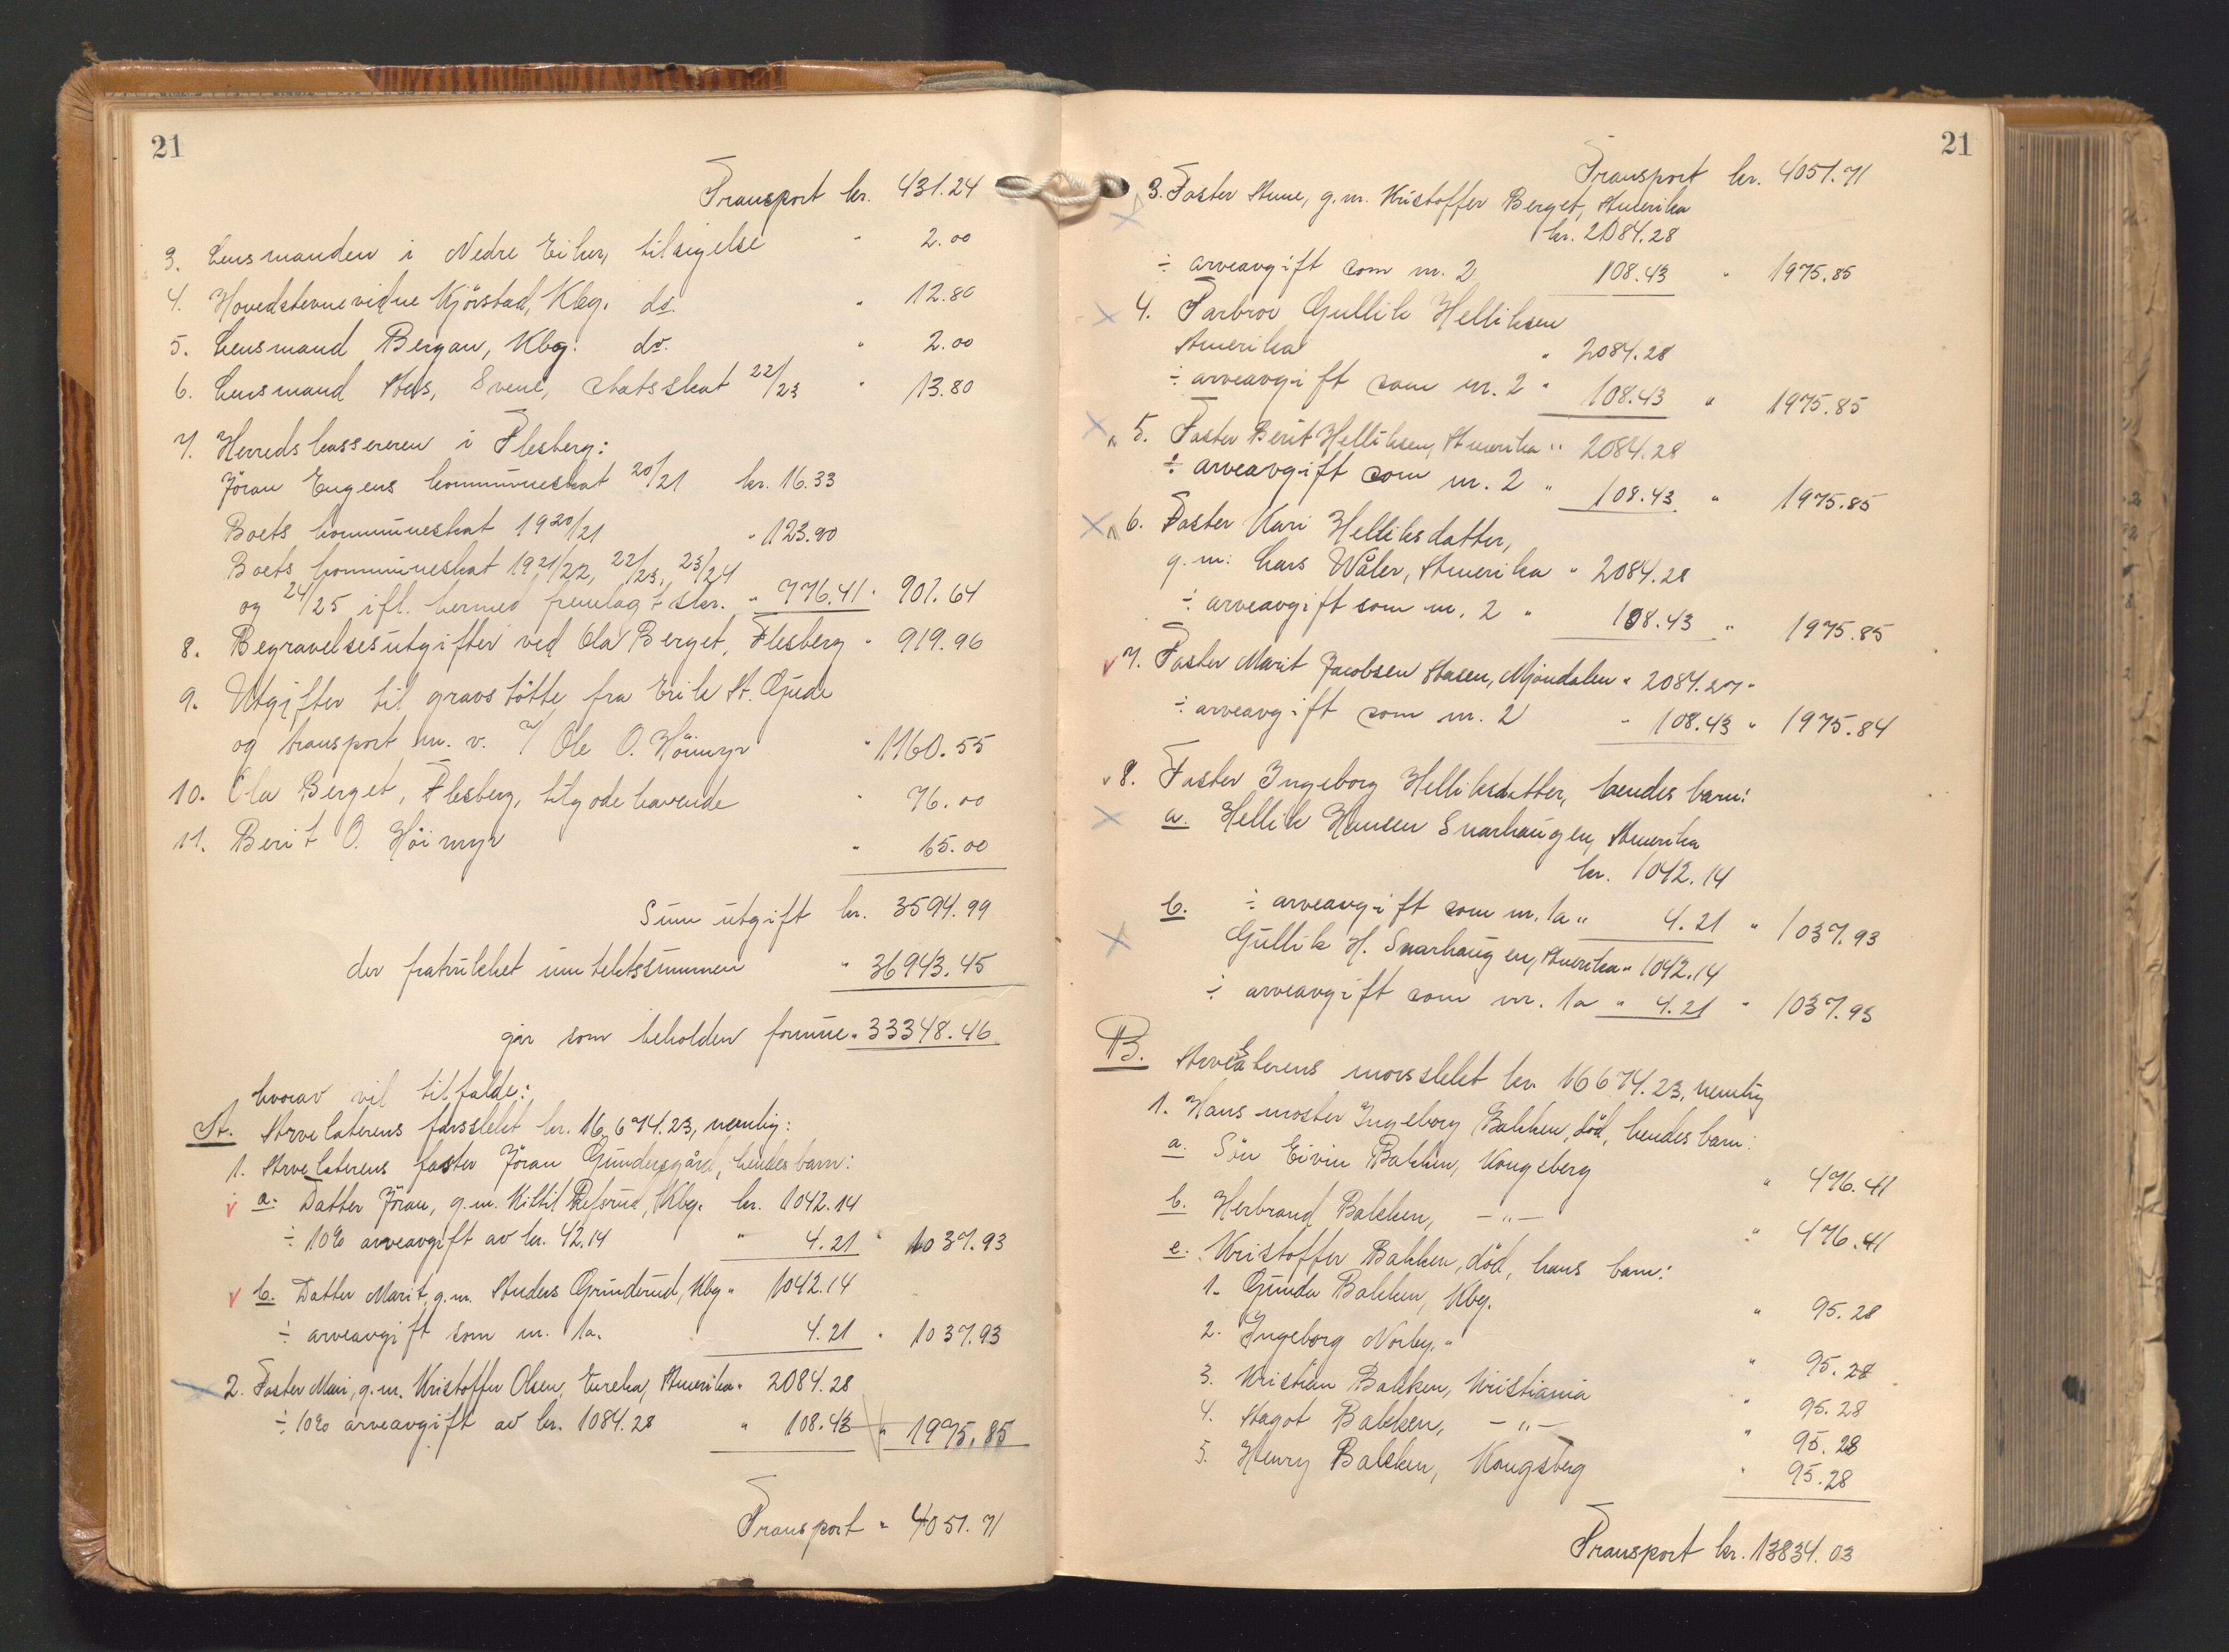 21
Transport kr. 431.24
3. Lensmanden i Nedre Eiker, tilsigelse " 2.00
4. Hovedstevnevidne Kjörstad, Kbg. do. " 12.80
5. Lensmand Bergan, Kbg. do. " 2.00
6. Lensmand Aas, Svene, statsskat 22/23 " 13.80
7. Herredskassereren i Flesberg:
Jöran Engens kommuneskat 20/21 kr. 16.33
Boets kommuneskat 1920/21 " 123.90
Boets kommuneskat 1921/22, 22/23, 23/24
og 24/25 ifl. hermed fremlagt skr. " 776.41 " 901.64
8. Begravelsesutgifter ved Ola Berget, Flesberg " 919.96
9. Utgifter til gravstötte fra Erik A. Gjude
og transport m. v. v/ Ole O. Höimyr " 1160.55
10. Ola Berget, Flesberg, tilgodehavende " 76.00
11. Berit O. Höimyr " 65.00
Sum utgift kr. 3594.99
der fratrukket inntektssummen " 36943.45
går som beholden formue " 33348.46
hvorav vil tilfalde:
A. Arvelaterens farsslekt kr. 16674.23, nemlig:
1. Arvelaterens faster Jöran Gundersgård, hendes barn:
a. Datter Jöran, g.m. Kittil Refsrud, Kbg. kr. 1042.14
÷ 10% arveavgift av kr. 42.14 " 4.21 " 1037.93
b. Datter Marit, g.m. Anders Grunderud, Kbg " 1042.14
÷ arveavgift som nr. 1a. 4.21 " 1037.93
2. Faster Mari, g.m. Kristoffer Olsen, Eureka, Amerika " 2084.28
÷ 10% arveavgift av kr. 1084.28 " 108.43 " 1975.85
Transport " 4051.71
21
Transport kr. 4051.71
3. Faster Anne, g.m. Kristoffer Berget, Amerika
kr. 2084.28
÷ arveavgift som nr. 2 108.43 " 1975.85
4. Farbror Gullik Helliksen
Amerika " 2084.28
÷ arveavgift som nr. 2 " 108.43 " 1975.85
5. Faster Berit Helliksen, Amerika " 2084.28
÷ arveavgift som nr. 2 " 108.43 " 1975.85
6. Faster Kari Helliksdatter,
g.m. Lars Wåler, Amerika " 2084.28
÷ arveavgift som nr. 2 " 108.43 " 1975.85
7. Faster Marit Jacobsen Aasen, Mjöndalen " 2084.27
÷ arveavgift som nr. 2 " 108.43 " 1975.84
8. Faster Ingeborg Helliksdatter, hendes barn:
a. Hellik Hansen Snarhaugen, Amerika
kr. 1042.14
÷ arveavgift som nr. 1a " 4.21 " 1037.93
b. Gullik H. Snarhaugen, Amerika " 1042.14
÷ arveavgift som nr. 1a " 4.21 " 1037.93
B. Arvelaterens morsslekt kr. 16674.23, nemlig
1. Hans moster Ingeborg Bakken, död, hendes barn:
a. Sön Eivin Bakken, Kongsberg " 476.41
b. Herbrand Bakken, — " — " 476.41
c. Kristoffer Bakken, död, hans barn:
1. Gunda Bakken, Kbg. " 95.28
2. Ingeborg Norby, " " 95.28
3. Kristian Bakken, Kristiania " 95.28
4. Aagot Bakken, — " — " 95.28
5. Henry Bakken, Kongsberg " 95.28
Transport kr. 13834.03